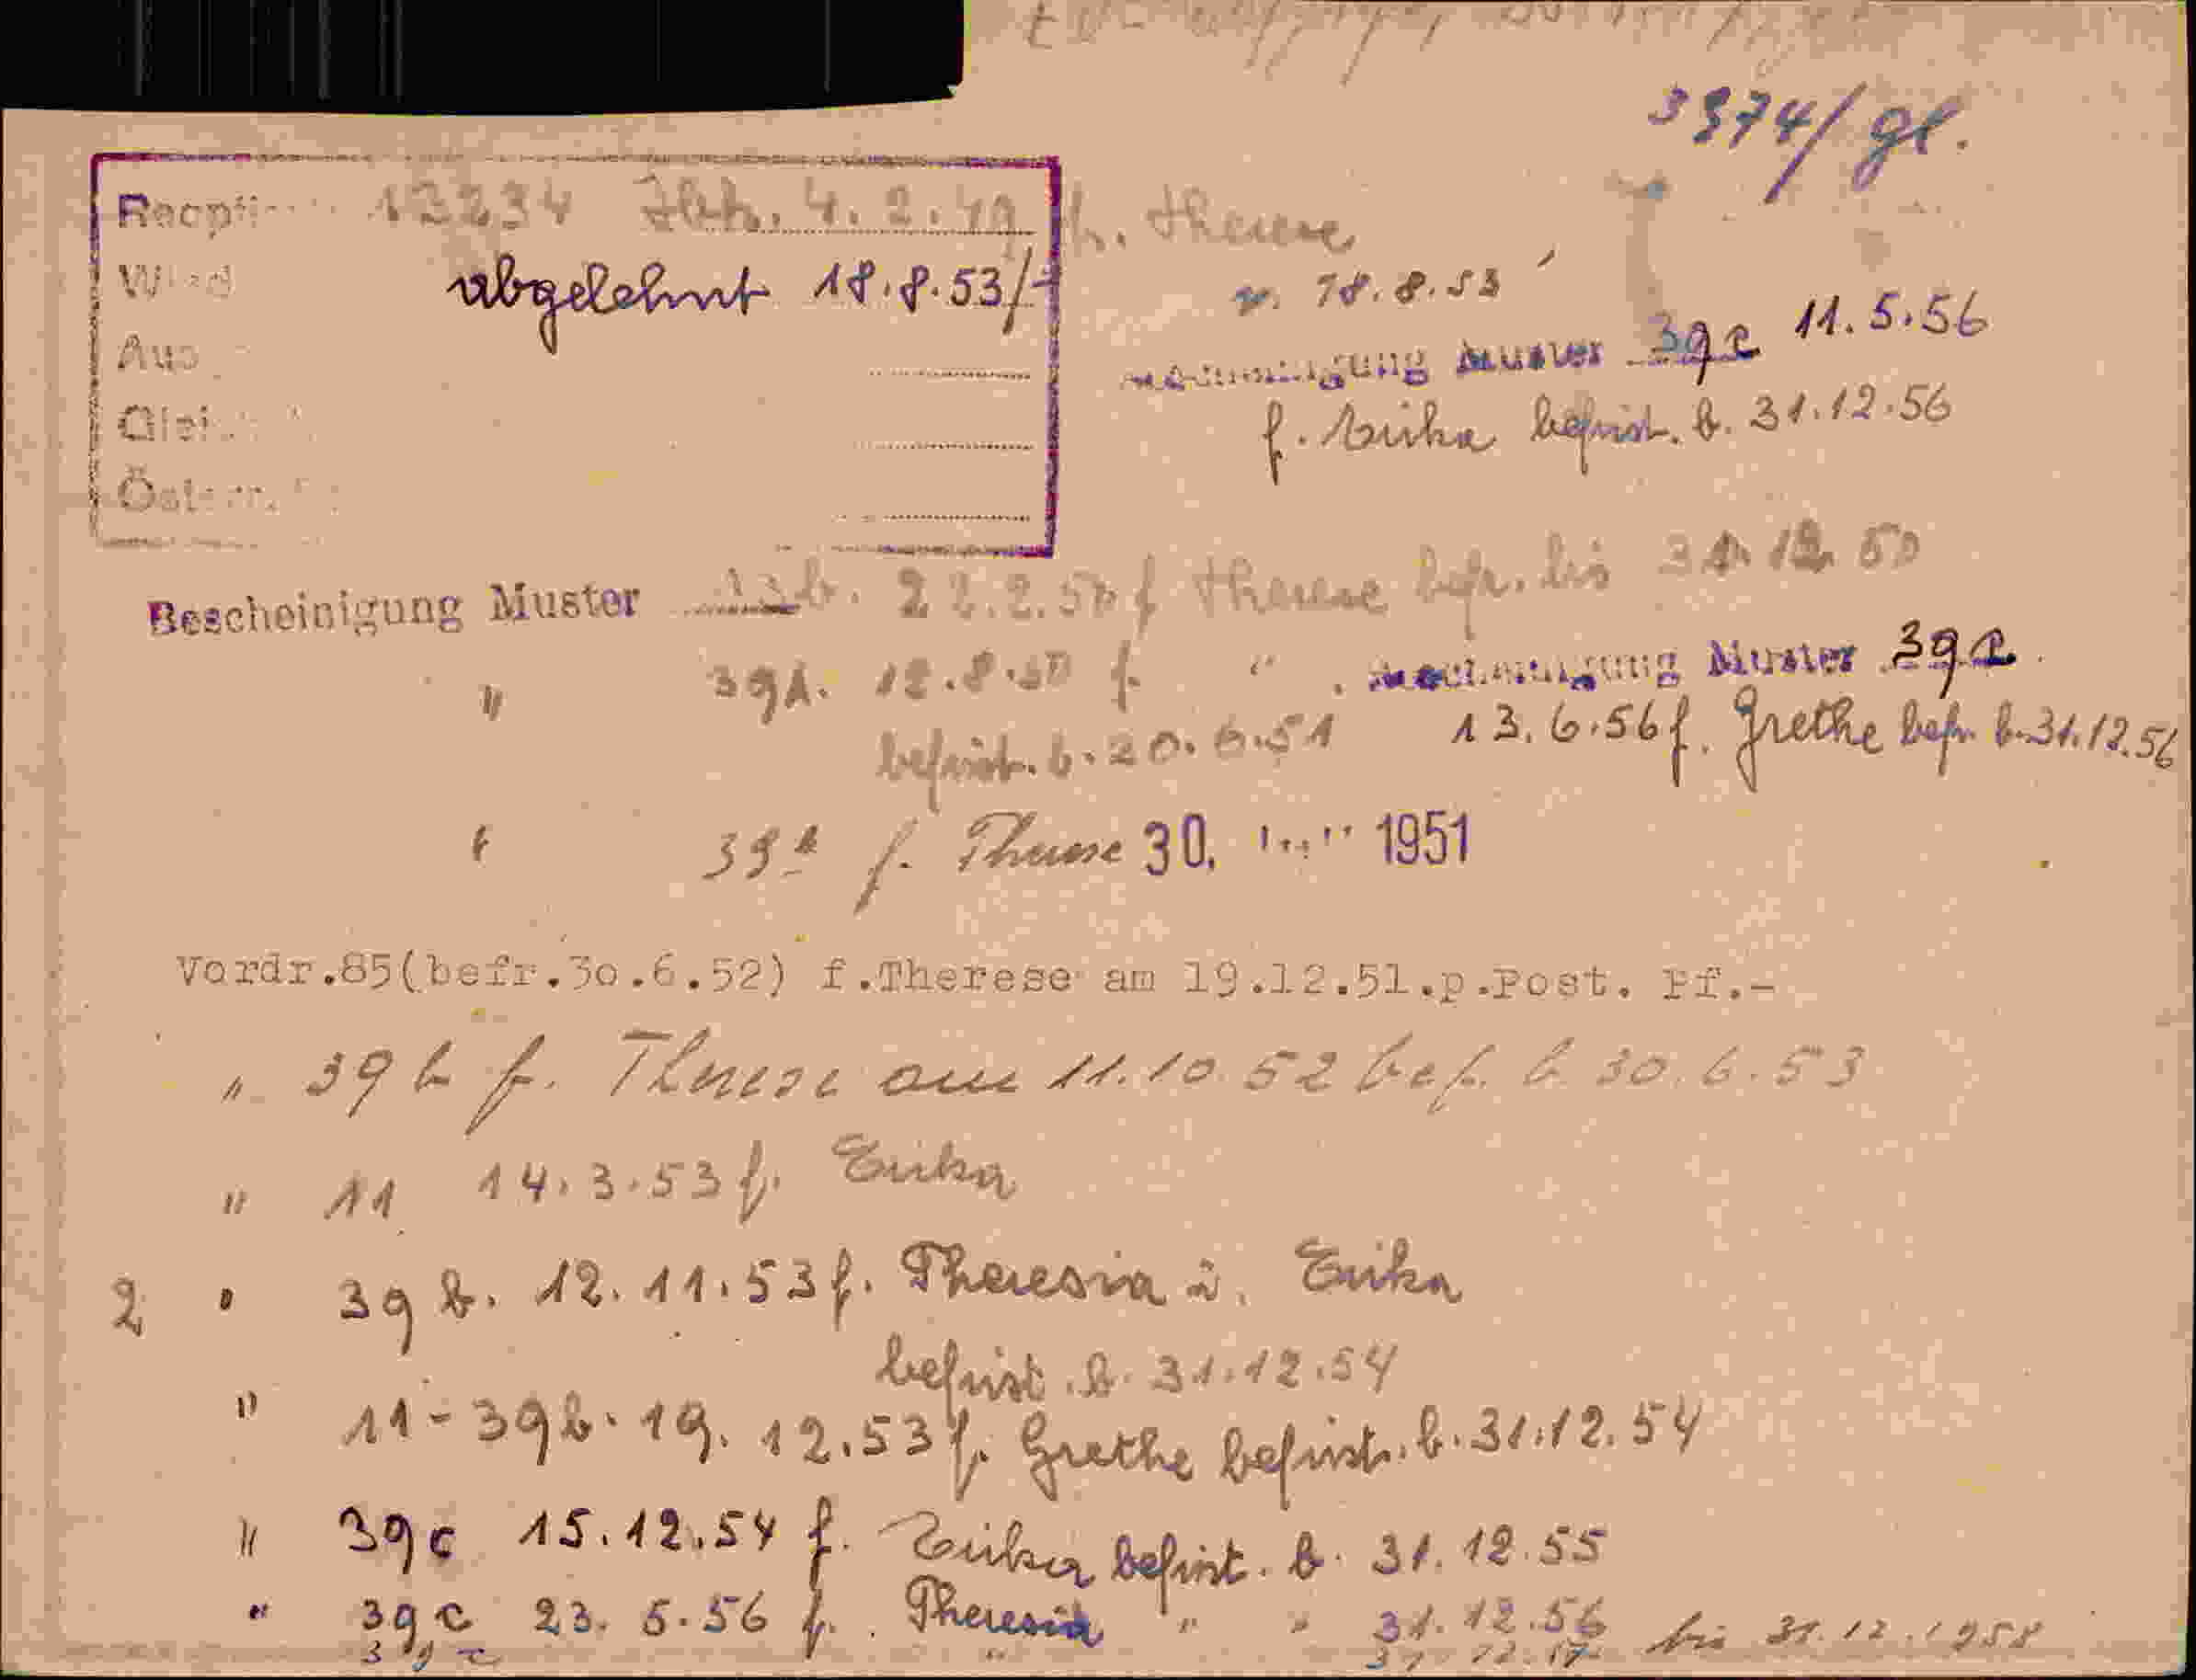 3374/gl.
13234 4.2.49 f. Therese
abgelehnt 18.8.53/
v. 18.8.53
Muster 39c 11.5.56
f. Erika befrist. b. 31.12.56
Bescheinigung Muster 13b. 22.2.50 f Therese befr. bis 31.12.50
" 39A. 12.8.50 f. "
befrist. b. 20.6.51
Muster 39c
13.6.56 f. Grethe befr. b. 31.12.56
" f. Therese 30. 1951
Vordr.85(befr.3o.6.52) f.Therese am 19.12.51.p.Post. Pf.-
" 39b f. Therese am 11.10.52 bef. b 30.6.53
" 11 14.3.53 f. Erika
2 " 39b. 12.11.53 f. Theresia u. Erika
befrist. b. 31.12.54
" 11-39b. 19.12.53 f. Grethe befrist. b. 31.12.54
" 39c 15.12.54 f. Erika befrist. b. 31.12.55
" 39c 23.5.56 f. Theresia " " 31.12.56
39c " bis 31.12.1958